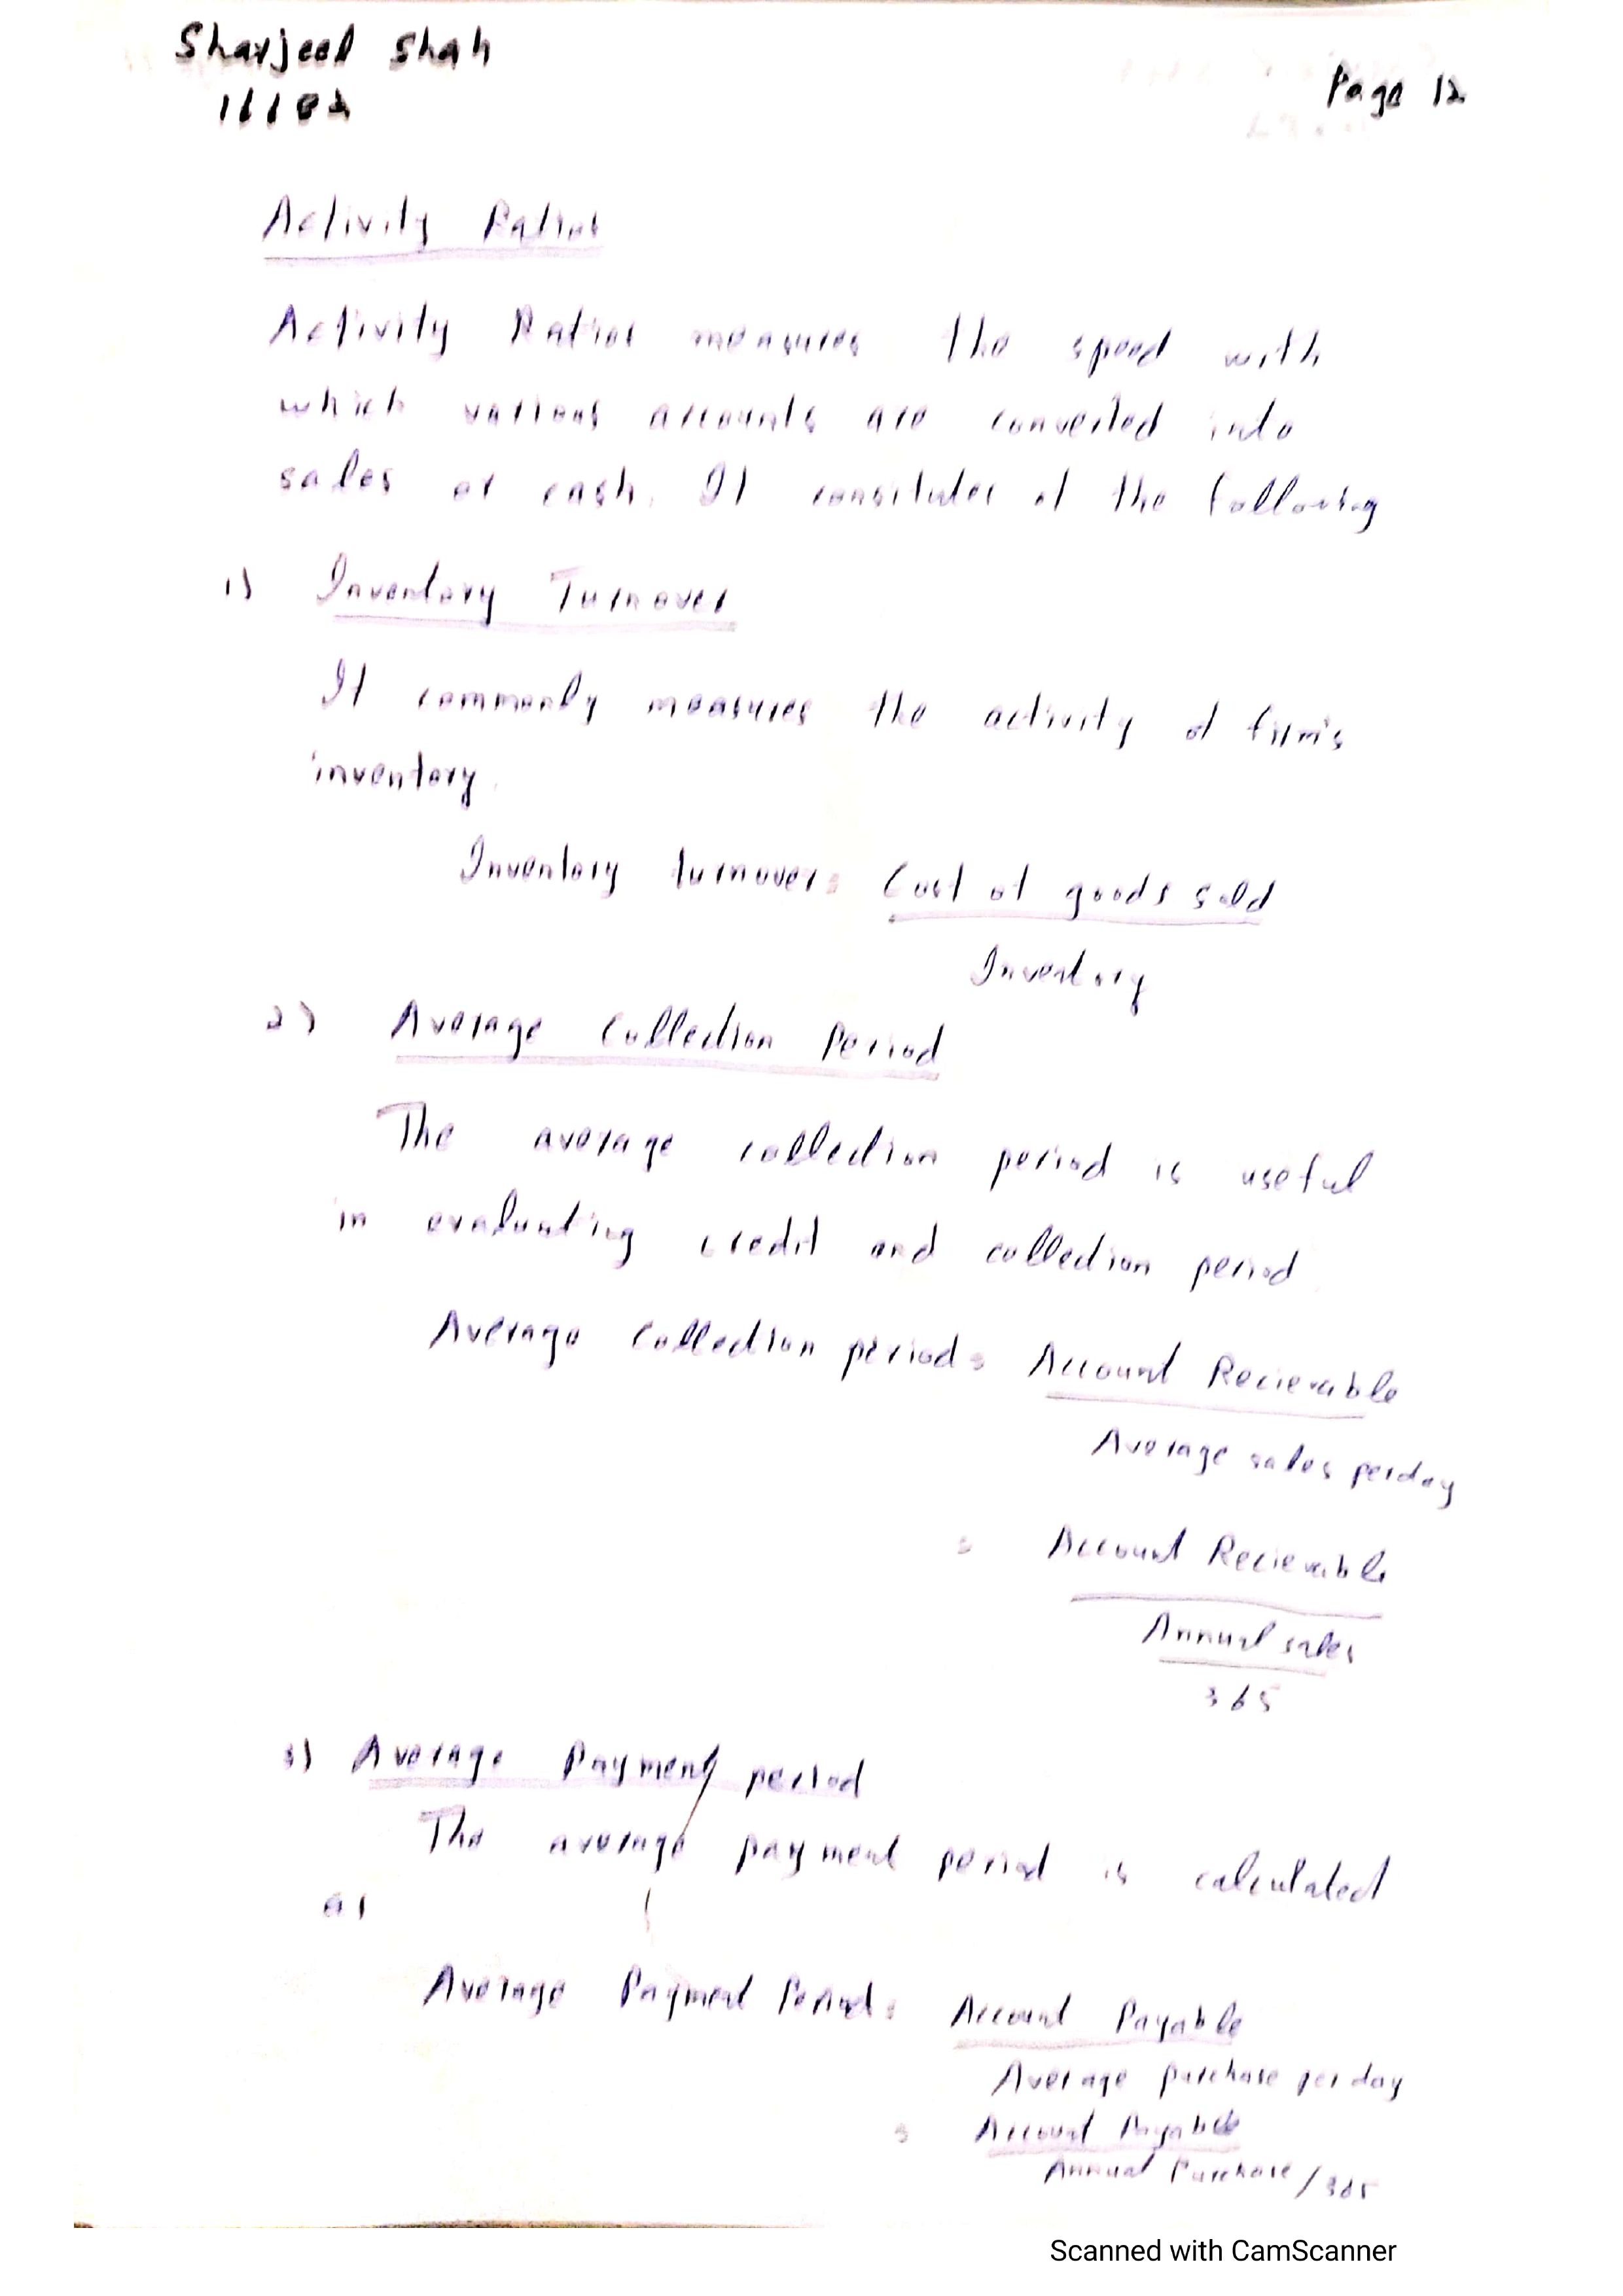 Sharjeel Shah
Page 12
Activity Ratios
Activity Ratios measures the speed with
which various accounts are converted into
sales or cash. It consitutes of the following
1) Inventory Turnover
It commonly measures the activity of firm's
inventory.
Inventory turnover = Cost of goods sold
Inventory
2) Average Collection Period
The average collection period is useful
in evaluating credit and collection period.
Average Collection period = Account Recievable
Average sales perday
= Account Recievable
Annual sales
365
3) Average Payment period
The average payment period is calculated
as
Average Payment Period = Account Payable
Average purchase per day
= Account Payable
Annual Purchase / 365
Scanned with CamScanner